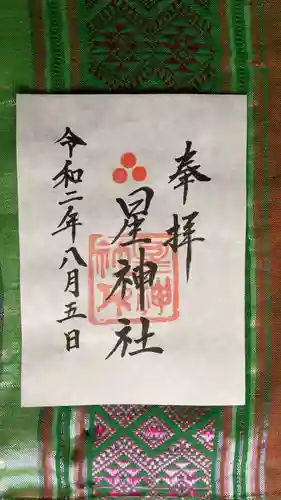 奉拝
星神社
令和二年八月五日